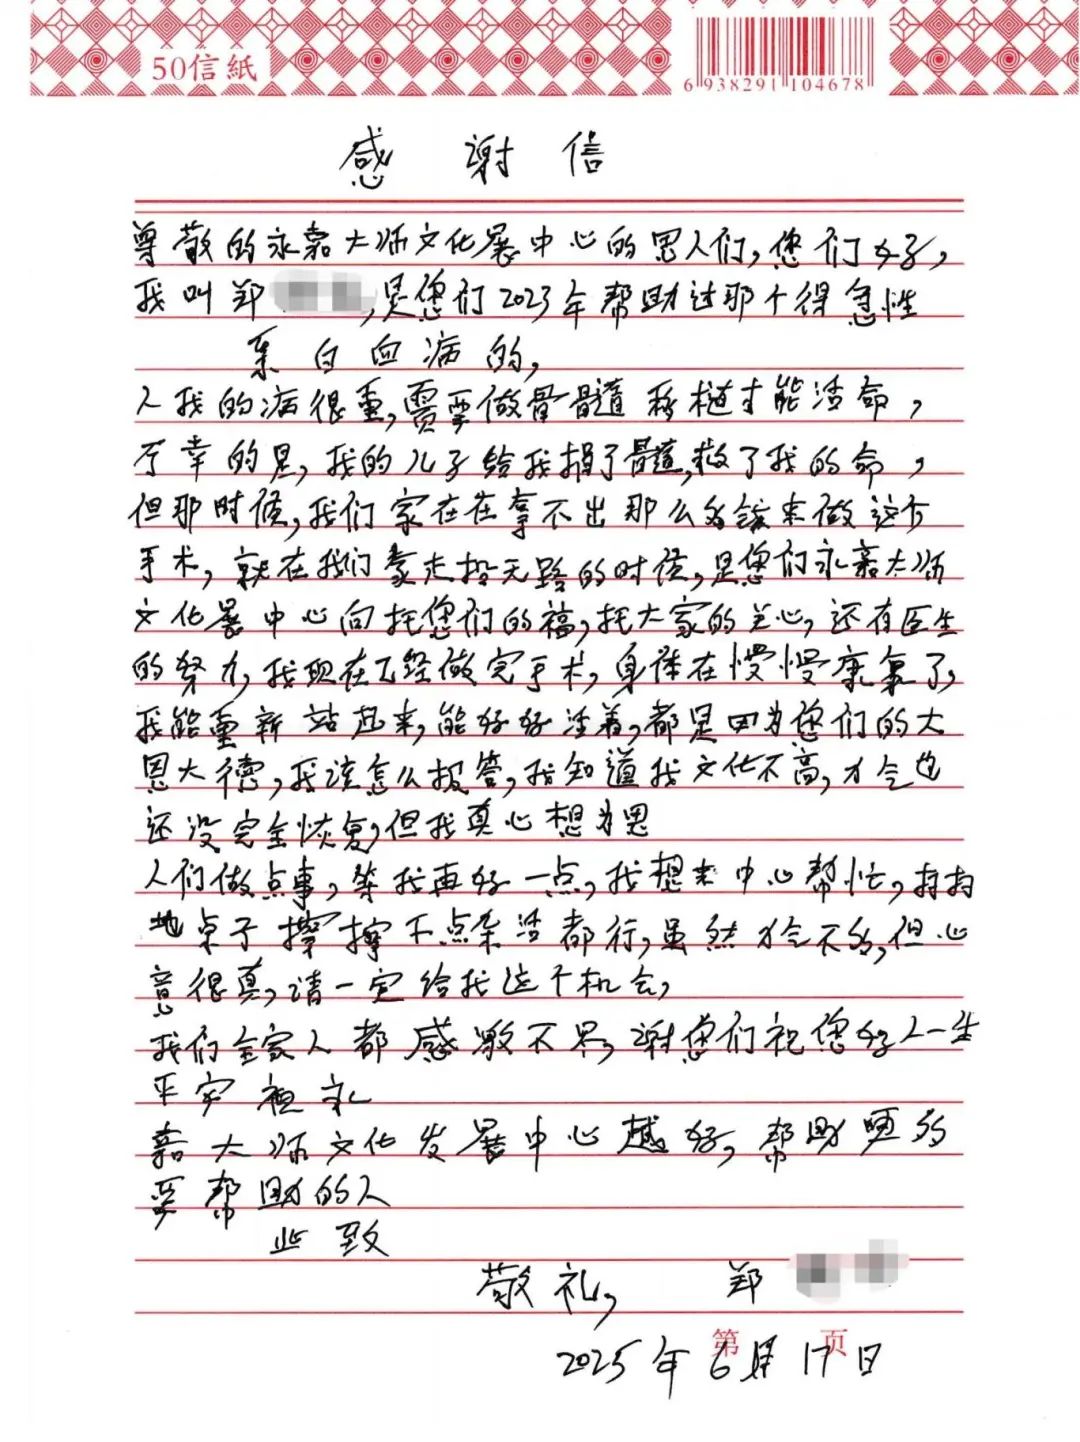 50信紙
6 938291 104678
感谢信
尊敬的永嘉大师文化展中心的恩人们,您们好,
我叫郑 ,是您们2023年帮助过那个得急性
系白血病的,
人我的病很重,需要做骨髓移植才能活命,
万幸的是,我的儿子给我捐了髓,救了我的命,
但那时候,我们家在在拿不出那么多钱来做这个
手术,就在我们豪走投无路的时候,是您们永嘉大师
文化展中心向托您们的福,托大家的关心,还有医生
的努力,我现在已经做完手术,身体在慢慢康复了,
我能重新站起来,能好好活着,都是因为您们的大
恩大德,我该怎么报答,我知道我文化不高,才令也
还没完全恢复,但我真心想为恩
人们做点事,等我再好一点,我想来中心帮忙,扫扫
地桌子擦擦干点杂活都行,虽然才令不多,但心
意很真,请一定给我这个机会,
我们全家人都感激不尽,谢您们祝您好人一生
平安 祖永
嘉大师文化发展中心越好,帮助更多
要帮助的人
此致
敬礼, 郑
第 页
2025年6月17日